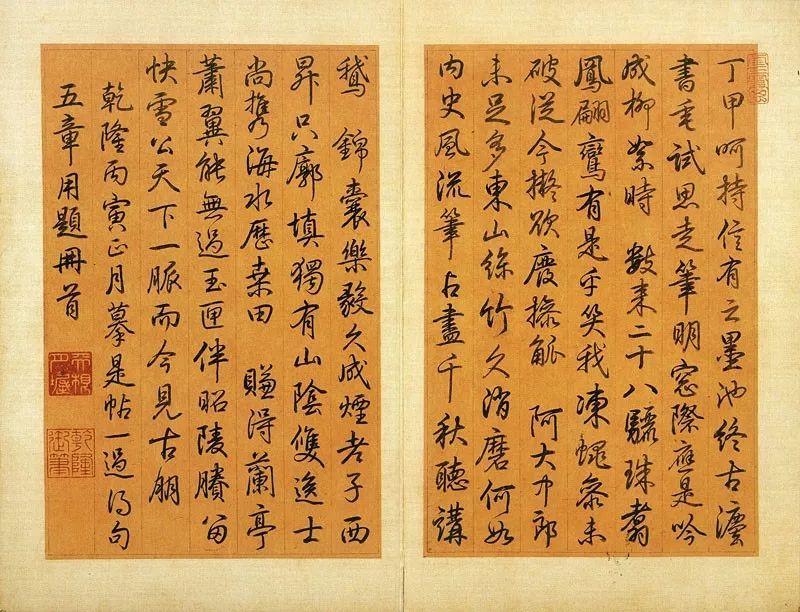 丁甲呵持信有之墨池終古灋
書垂試思走筆明窗際應是吟
成柳絮時 數来二十八驪珠翥
鳳翩鸞有是乎笑我凍蠅參未
破從今擬欲廢操觚 阿大中郎
未足多東山絲竹久消磨何如
内史風流筆占盡千秋聽講
鵝 錦囊樂毅久成煙老子西
昇只廓填獨有山陰雙逸士
尚攜海水歷桑田 賺得蘭亭
蕭翼能無過玉匣伴昭陵賸留
快雪公天下一脈而今見古朋
乾隆丙寅正月摹是帖一過得句
五章用題冊首
乾隆御筆